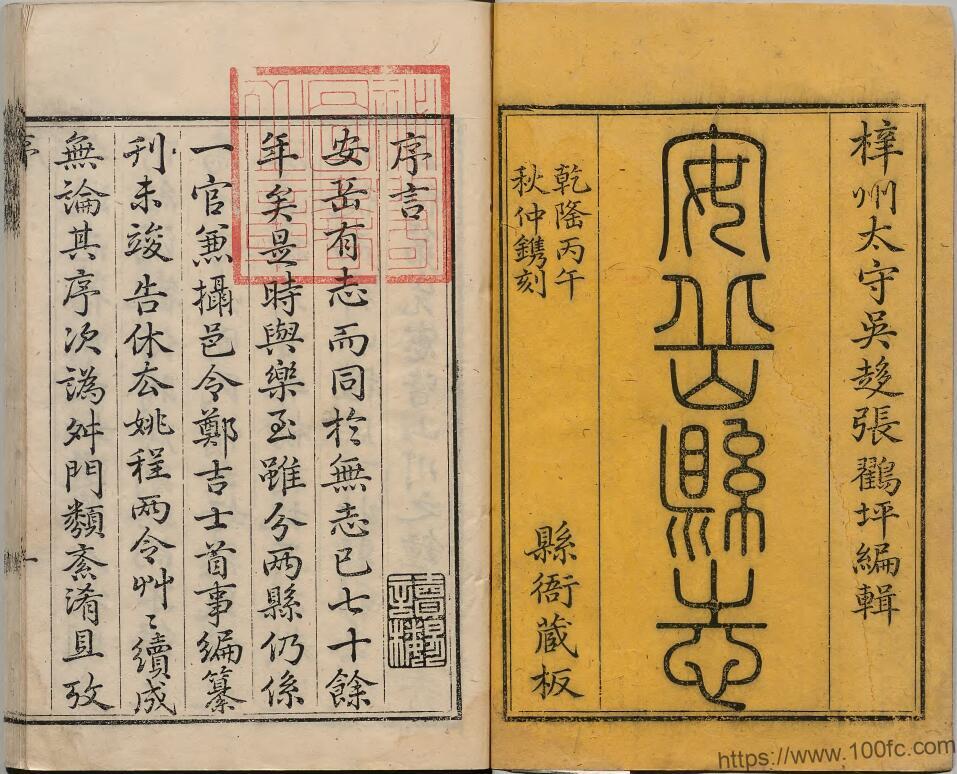 梓州太守吳趍張鸖坪編輯
安岳縣志
乾隆丙午
秋仲鐫刻
縣衙藏板
序言
安岳有志而同於無志已七十餘
年矣是時與樂至雖分两縣仍係
一官兼攝邑令鄭吉士首事編纂
刋未竣告休去姚程两令艸〻續成
無論其序次譌舛門類紊淆且攷
序
一
https://www.100fc.com